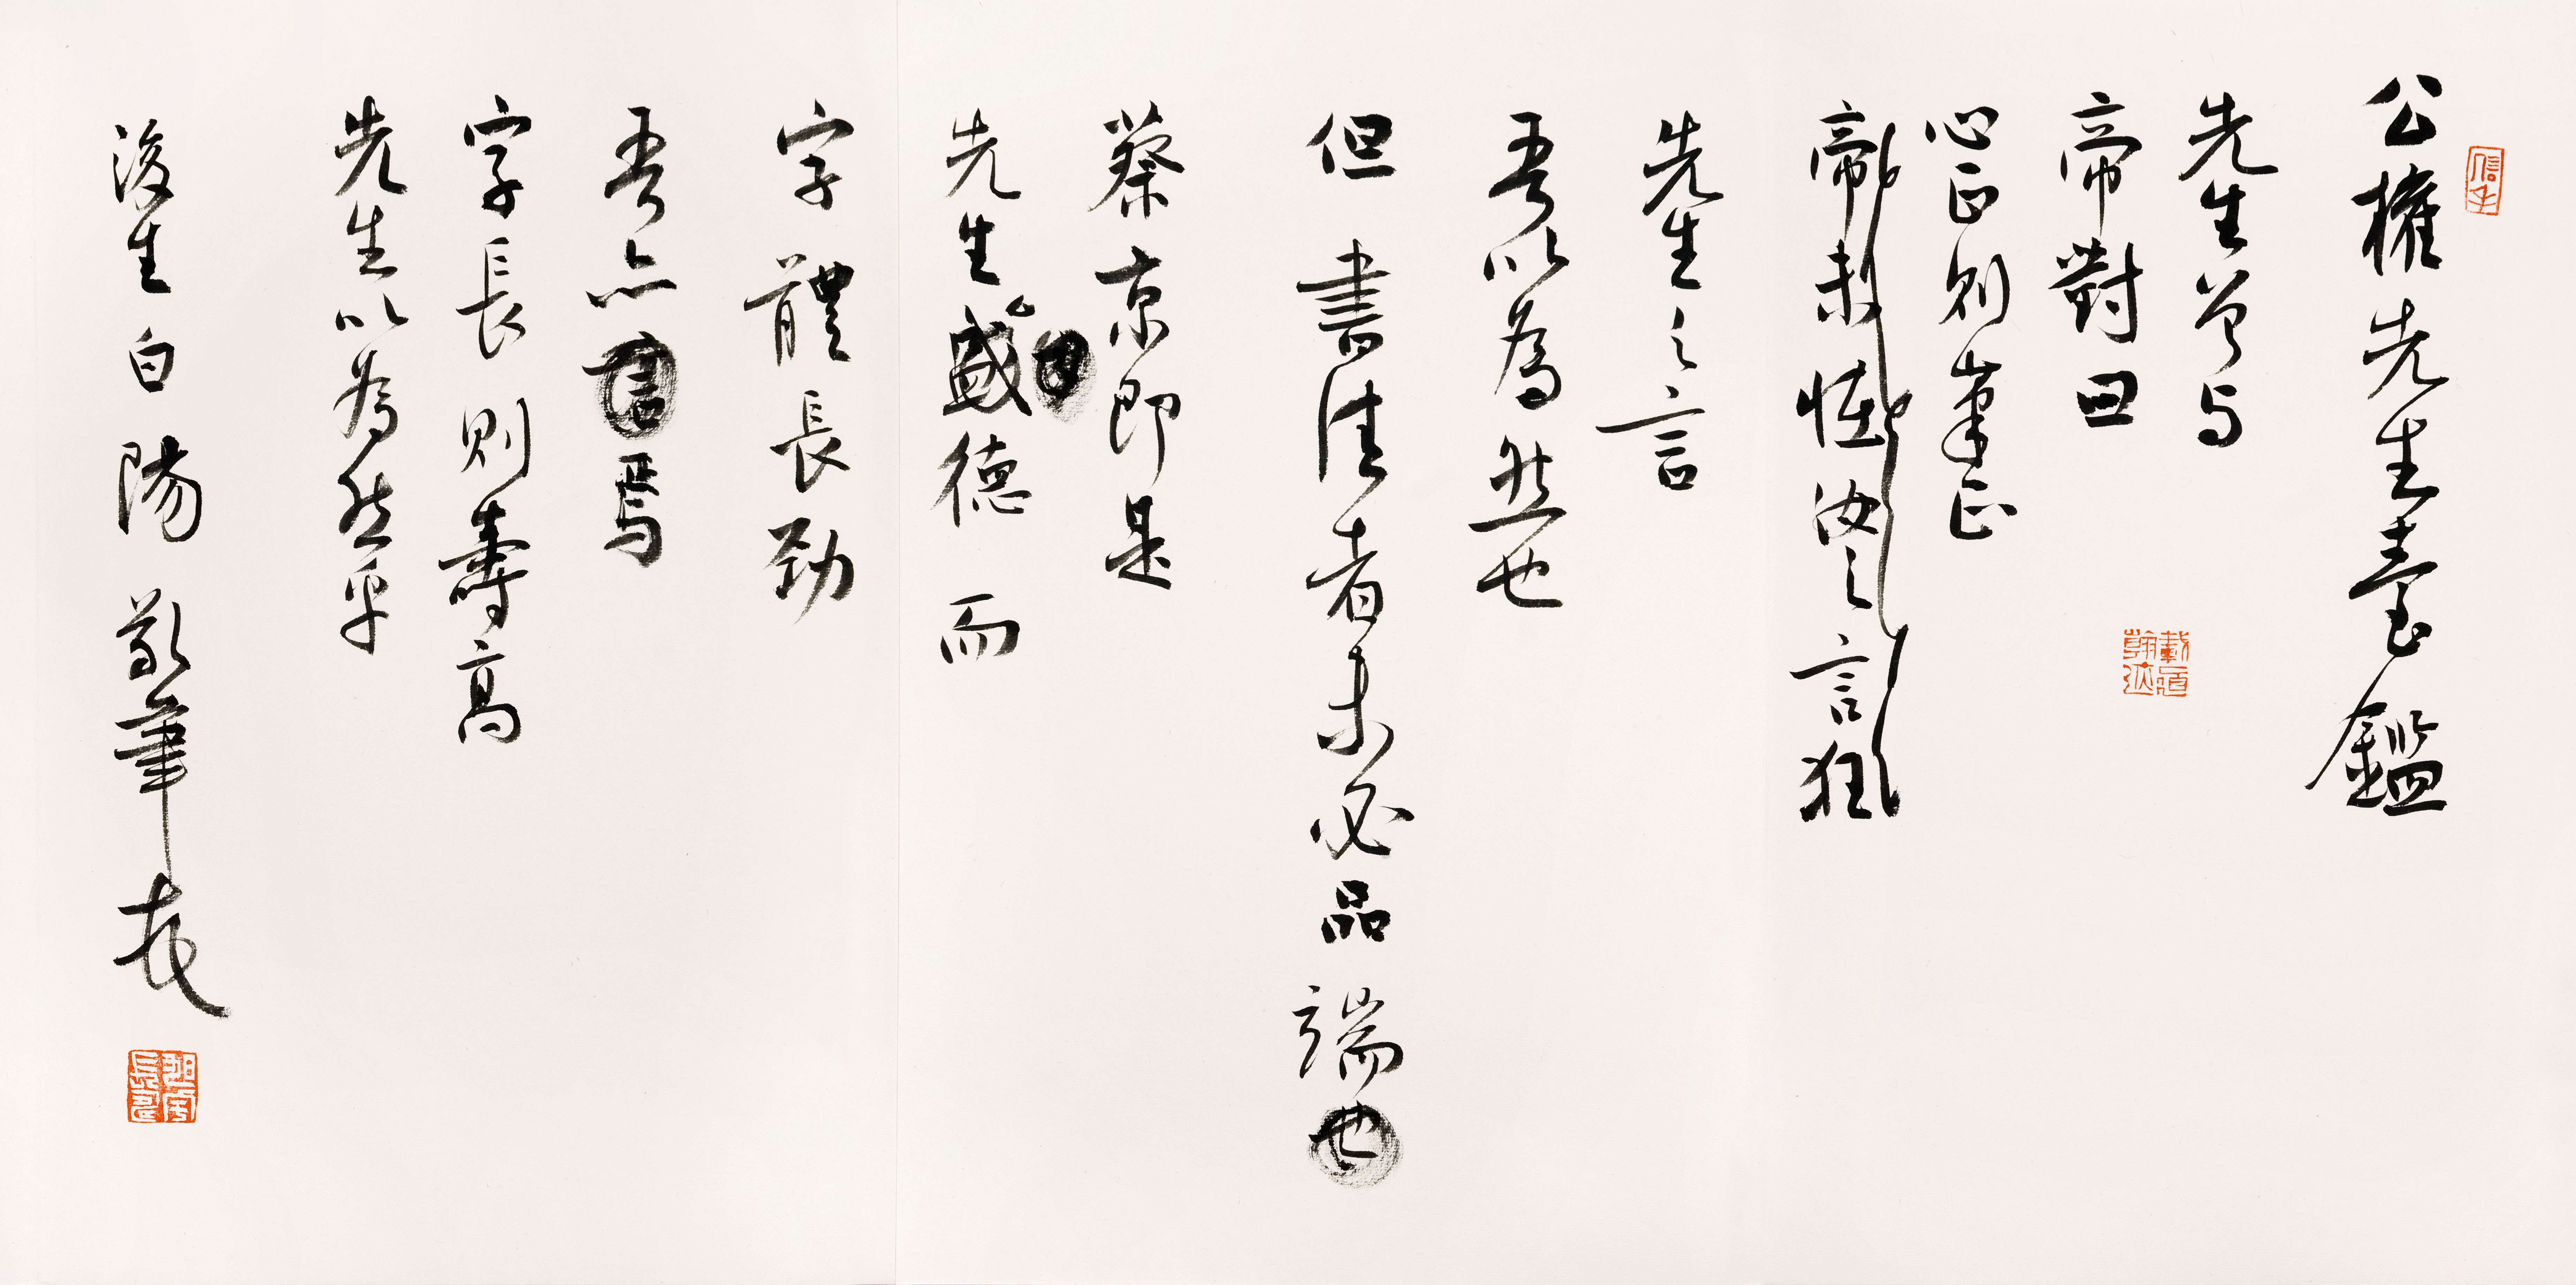 公權先生臺鑑
先生曾与
帝對曰
心正則筆正
帝未怪汝之言狂
先生之言
吾以為然也
但書佳者未必品端也
蔡京即是
先生盛德而
字體長勁
吾亦信焉
字長則壽高
先生以為然乎
後生白陽敬筆
信手
載道